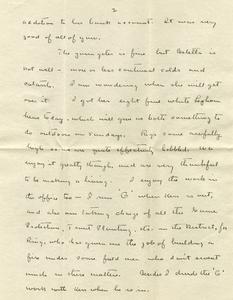 2
addition to her bank account. It was very
good of all of you.
The youngster is fine but
is
not well - more or less continual colds and
catarrh. I am wondering when she will get
over it. I got her eight fine white Leghorn
hens today - which will give us both something to
do outdoors on Sundays. Eggs some awfully
high so we are quite
We
enjoy it greatly though, and are very thankful
to be making a living. I enjoy the work in
the office too - I run "G" when Ken is out,
and also am taking charge of all the Game
Protection,
Planting, etc. in the District, for
King, who has given me the job of building a
fire under some field men who don't sweat
much in this matter. Besides I divide the "G"
work with Ken when he is in.